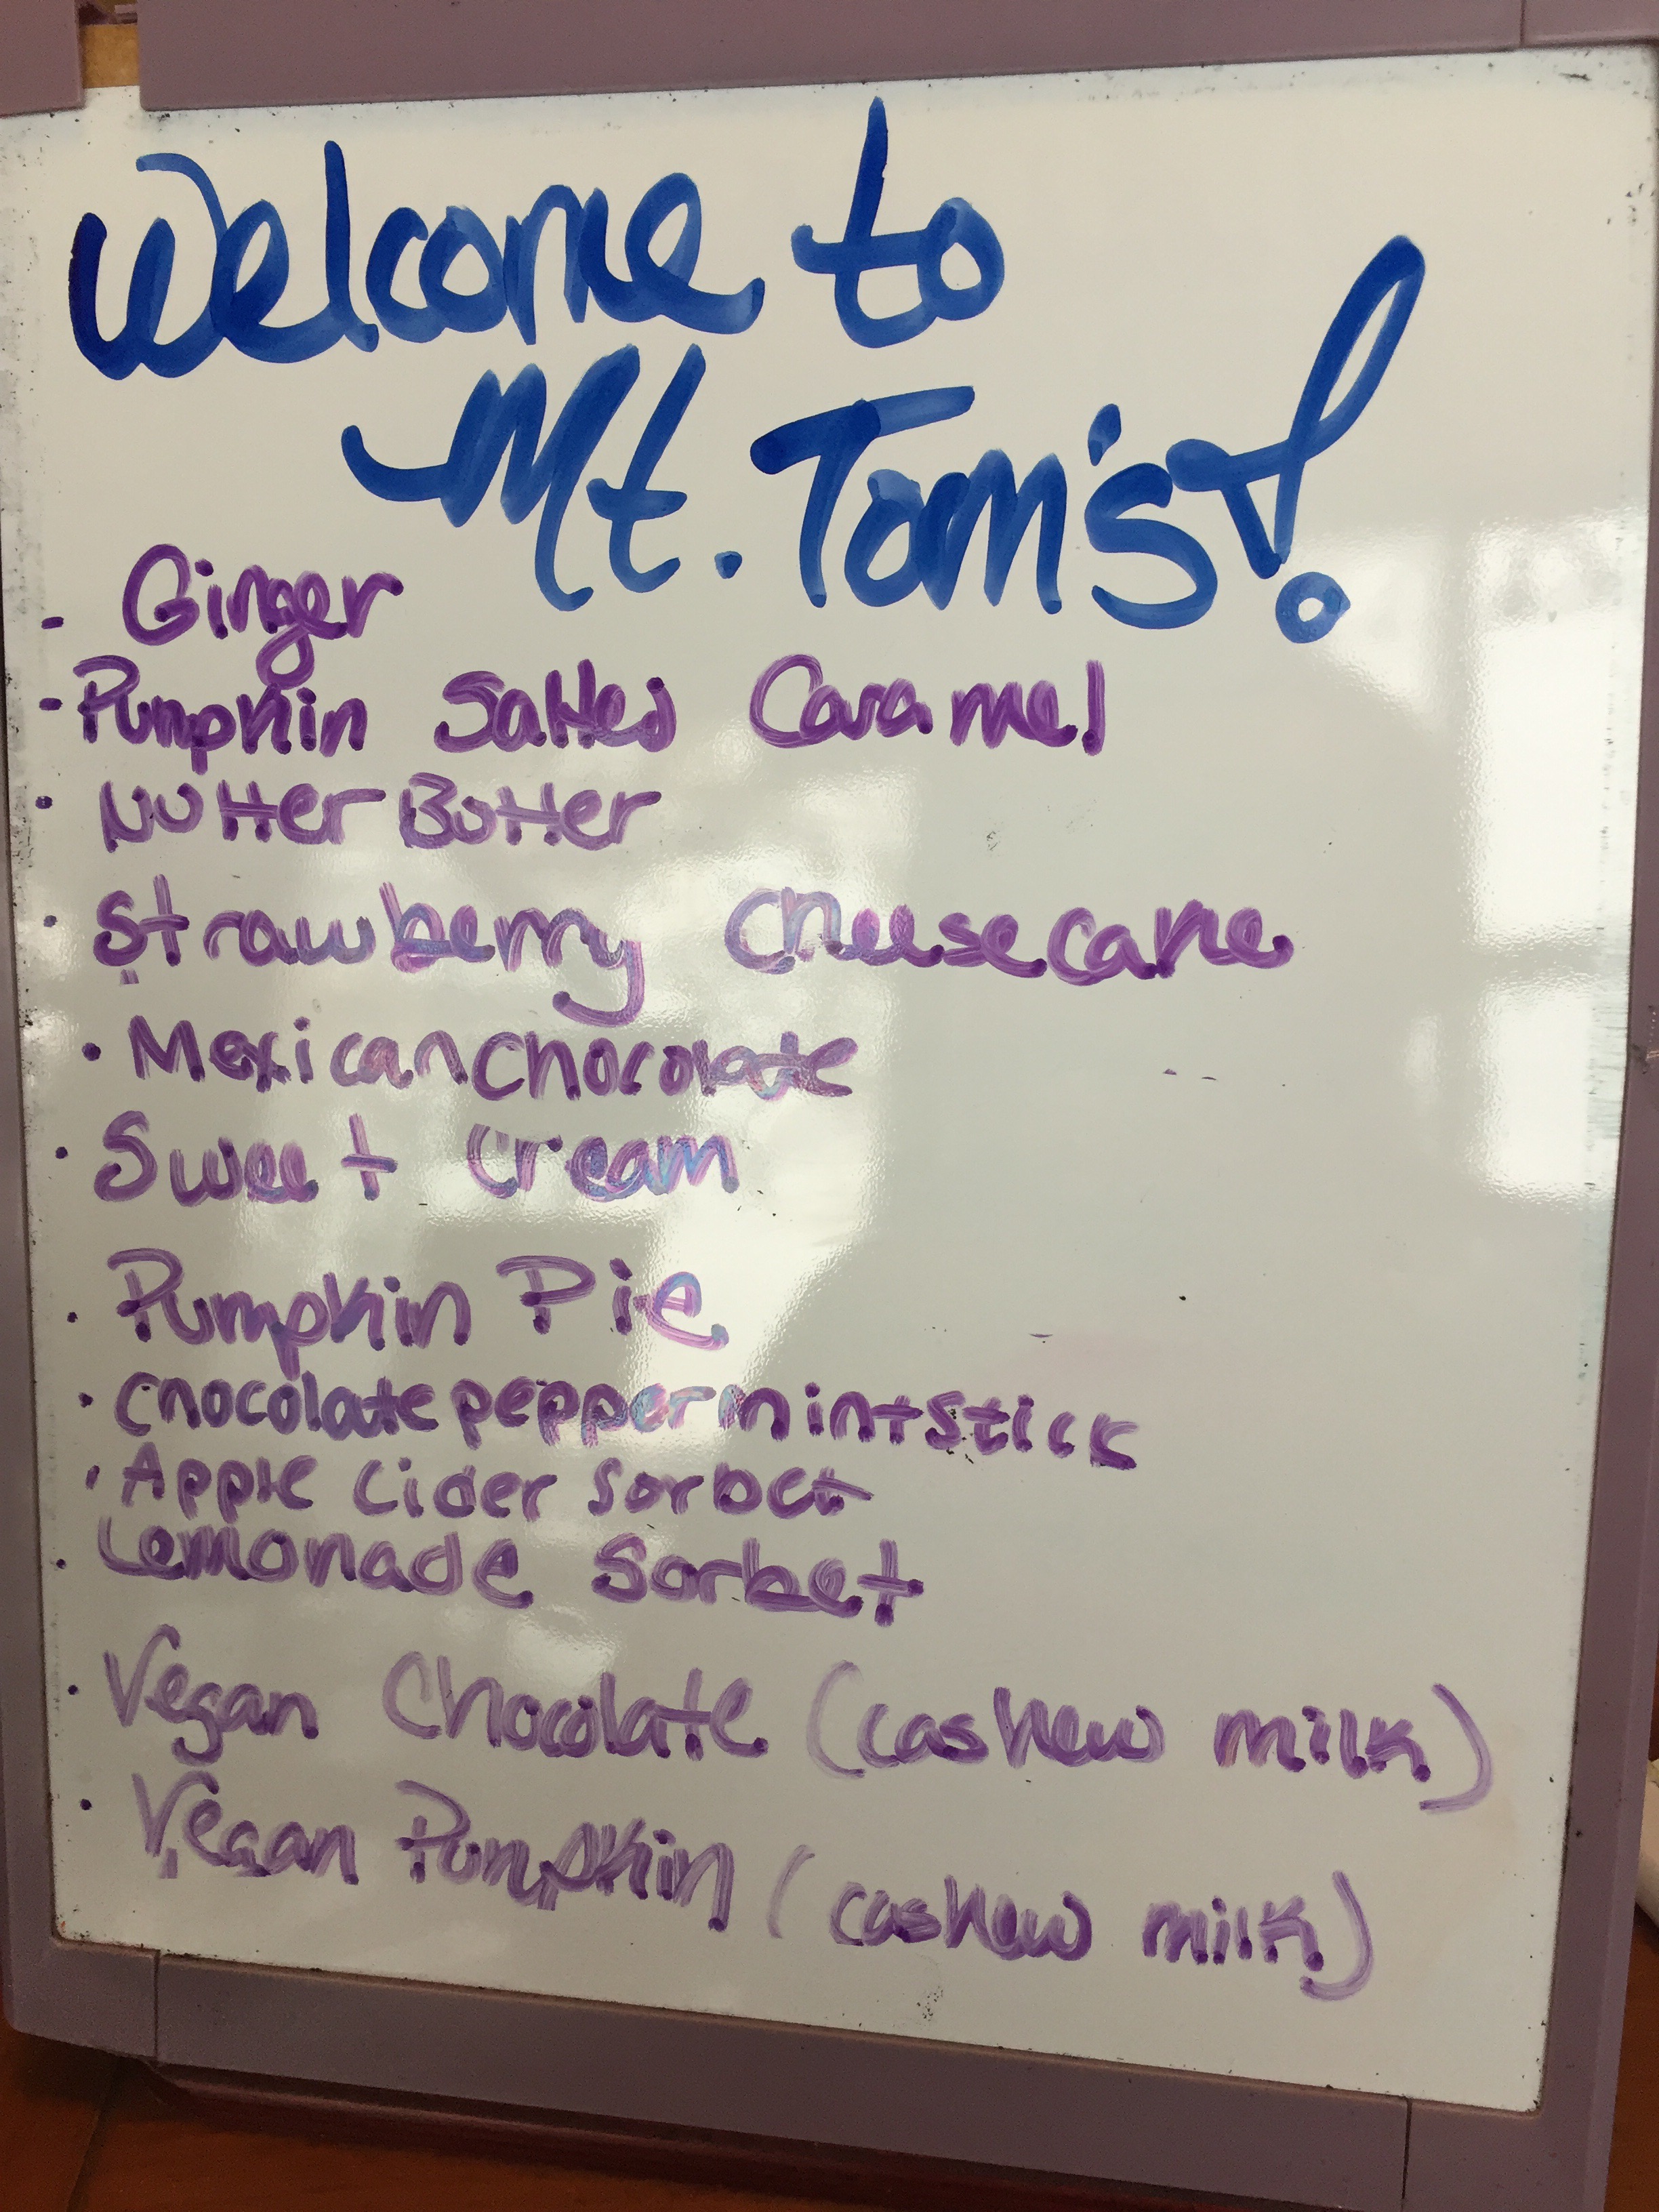 Welcome to
Mt. Tom's!
- Ginger
- Pumpkin Salted Caramel
· Nutter Butter
· Strawberry Cheesecake
· Mexican chocolate
· Sweet Cream
· Pumpkin Pie
· chocolate peppermint stick
· Apple Cider Sorbet
· Lemonade Sorbet
· Vegan Chocolate (cashew milk)
· Vegan Pumpkin (cashew milk)